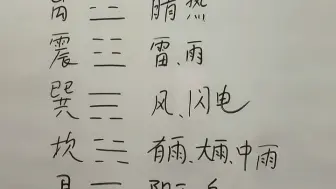 离 ☲ 晴、热
震 ☳ 雷、雨
巽 ☴ 风、闪电
坎 ☵ 有雨、大雨、中雨